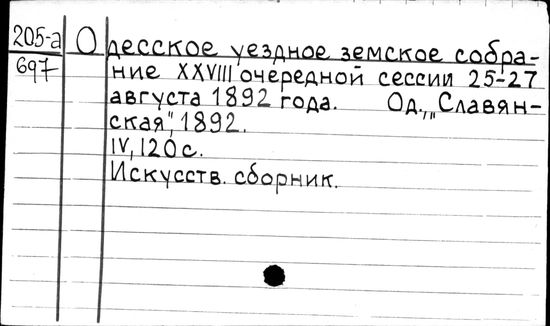 205-а
697
Одесское уездное земское собра-
ние XXVIII очередной сессии 25-27
августа 1892 года. Од., „Славян-
ская", 1892.
IV, 120 с.
Искусств. сборник.